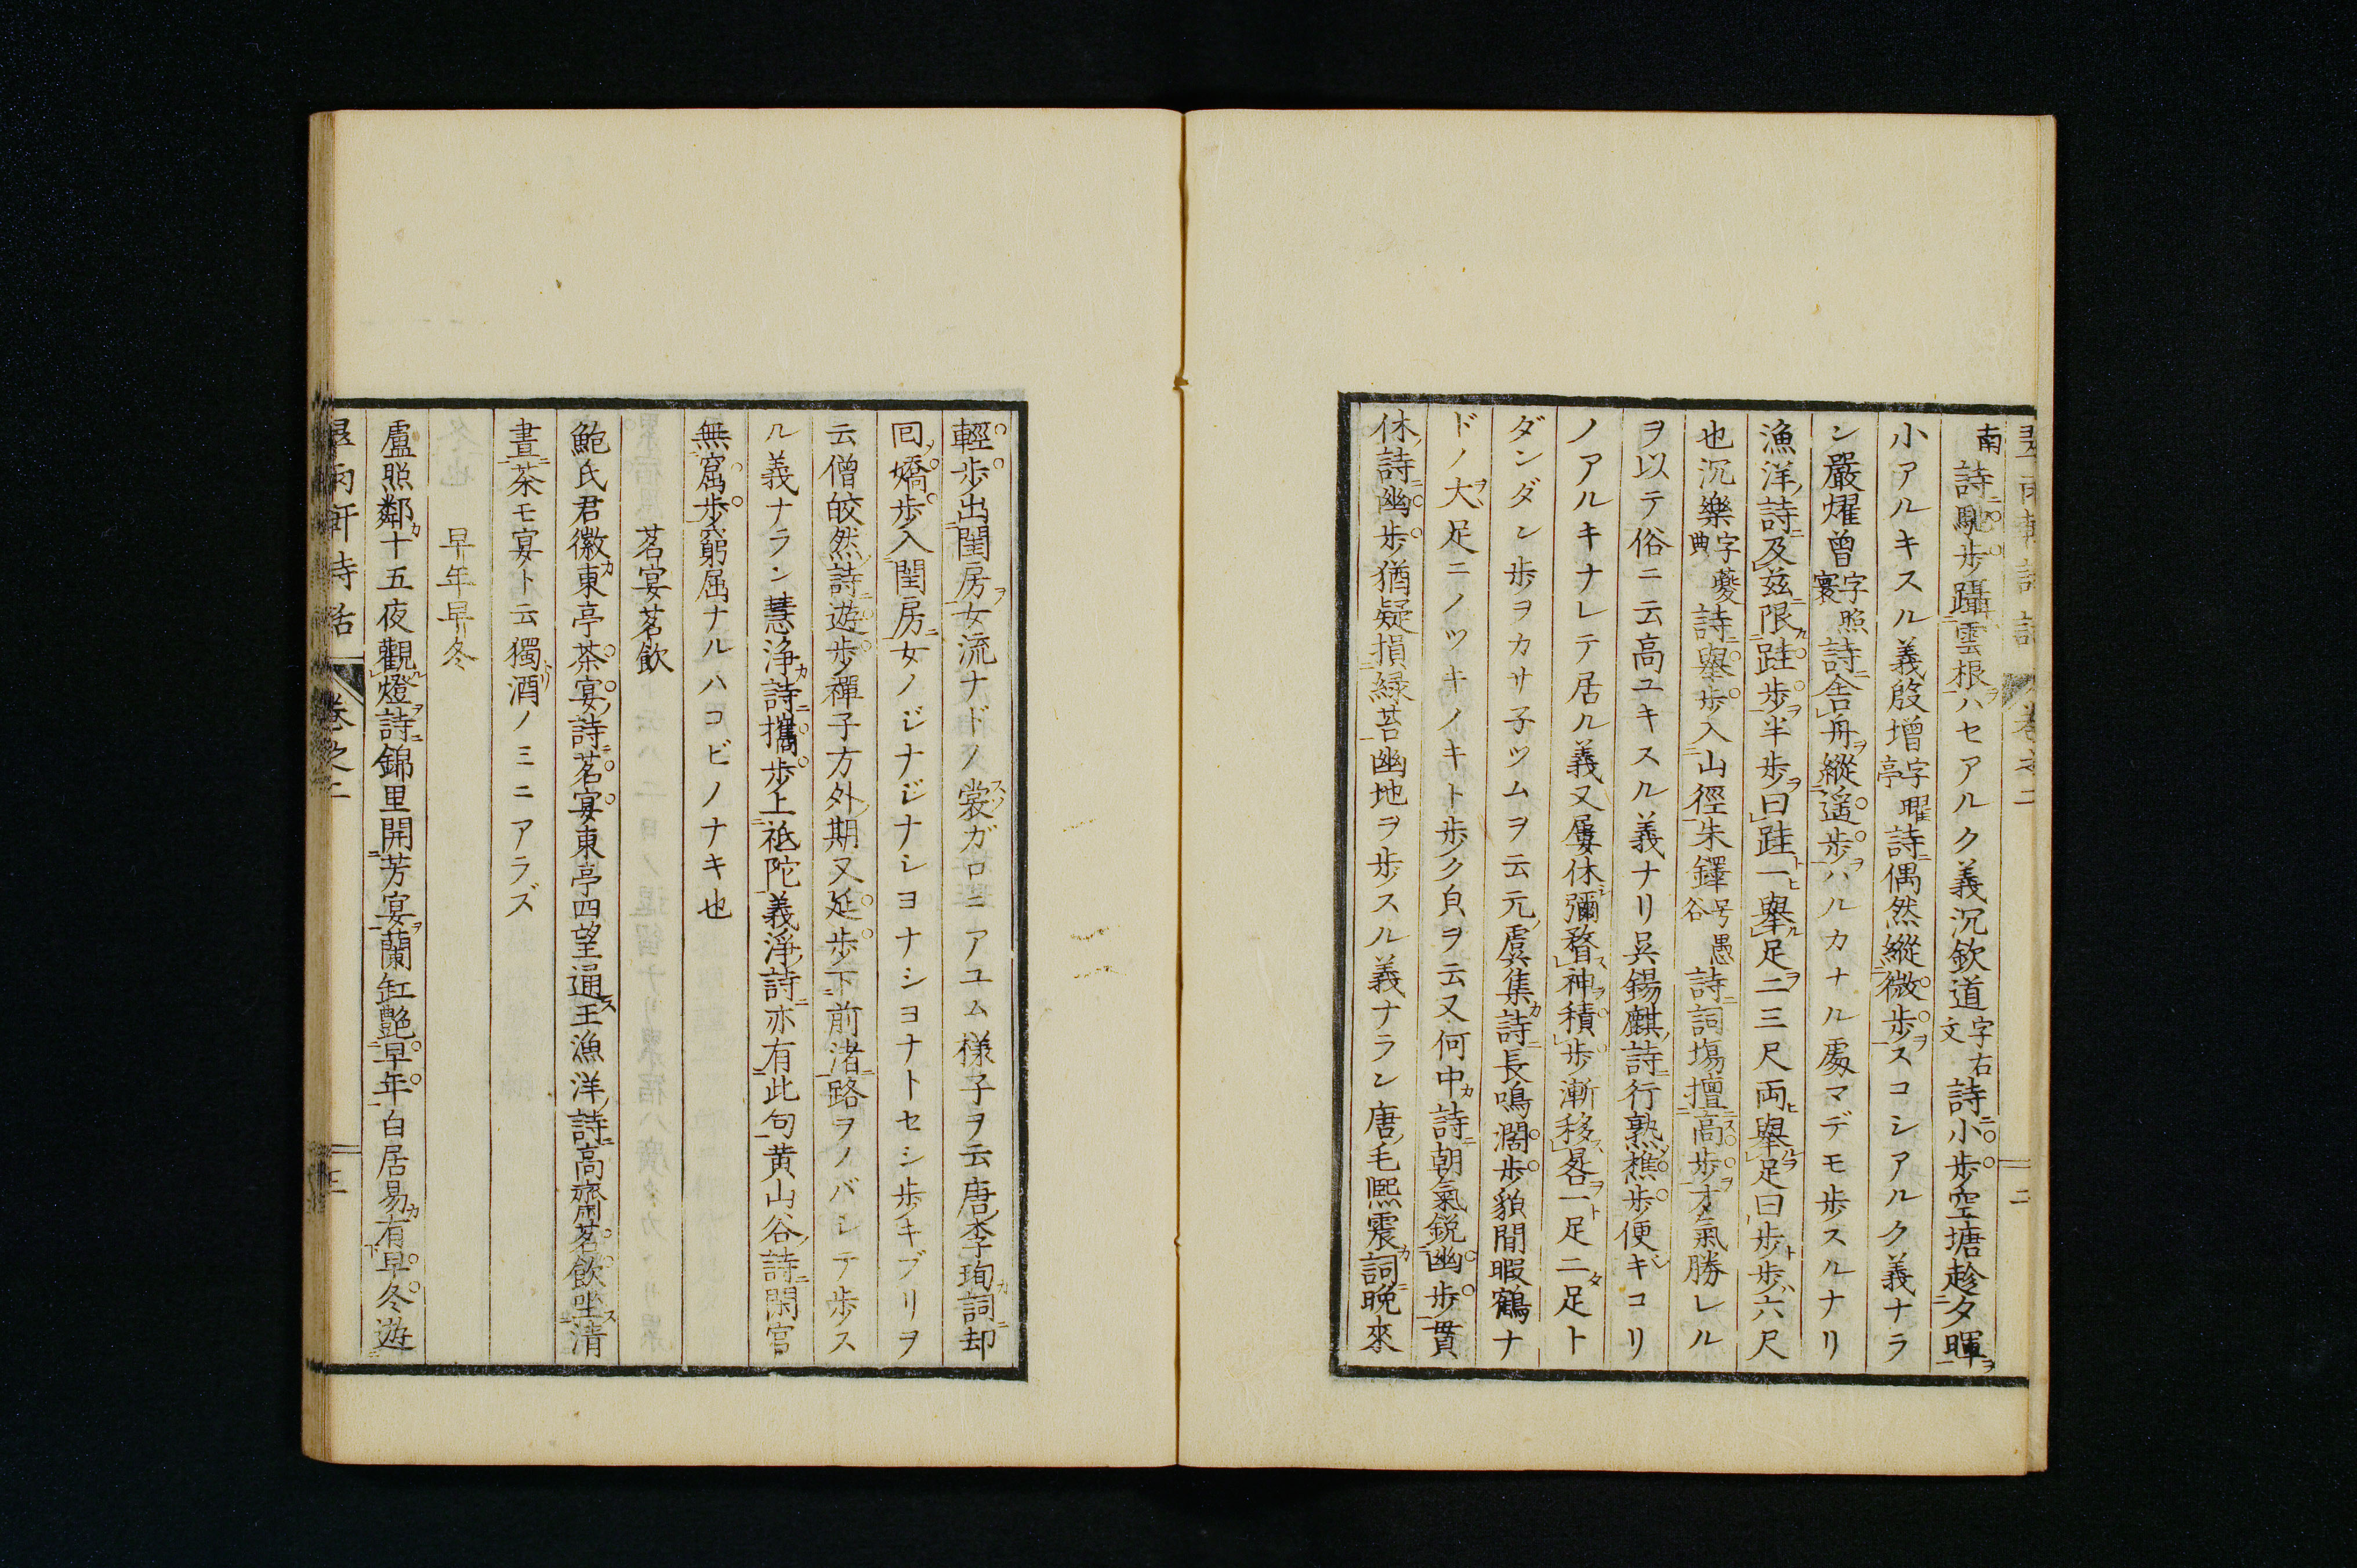 南詩馭歩躡雲根ハセアルク義沉欽道字右文詩小歩空塘趁夕暉
小アルキスル義殷増字曜亭詩偶然縱微歩スコシアルク義ナラ
ン嚴燿曽字照寰詩舎舟縱遥歩ハルカナル處マデモ歩スルナリ
漁洋詩及茲限跬歩半歩曰跬一舉足二三尺両舉足曰歩歩六尺
也沉樂字夔典詩舉歩入山徑朱鐸号愚谷詩詞塲擅高歩才氣勝レル
ヲ以テ俗ニ云高ユキスル義ナリ呉錫麒詩行熟樵歩便キコリ
ノアルキナレテ居ル義又屢休彌瞀神積歩漸移畧一足二足ト
ダンダン歩ヲカサ子ツムヲ云元虞集詩長鳴濶歩貌閒暇鶴ナ
ドノ大足ニノツキノキト歩ク㒵ヲ云又何中詩朝氣鋭幽歩貫
休詩幽歩猶疑損緑苔幽地ヲ歩スル義ナラン唐毛熙震詞晩來
輕歩出閨房女流ナドノ裳ガロニアユム様子ヲ云唐李珣詞却
回嬌歩入閨房女ノジナジナシヨナシヨナトセシ歩キブリヲ
云僧皎然詩遊歩禪子方外期又延歩下前渚路ヲノバシテ歩ス
ル義ナラン慧浄詩攜歩上祗陀義淨詩亦有此句黄山谷詩閑宫
無窩歩窮屈ナルハコビノナキ也
茗宴茗飲
鮑氏君徽東亭茶宴詩茗宴東亭四望通王漁洋詩高齋茗飲坐清
晝茶モ宴ト云獨酒ノミニアラズ
早年早冬
盧照鄰十五夜觀燈詩錦里開芳宴蘭缸艶早年白居易有早冬遊
軒詩話 卷之二 三